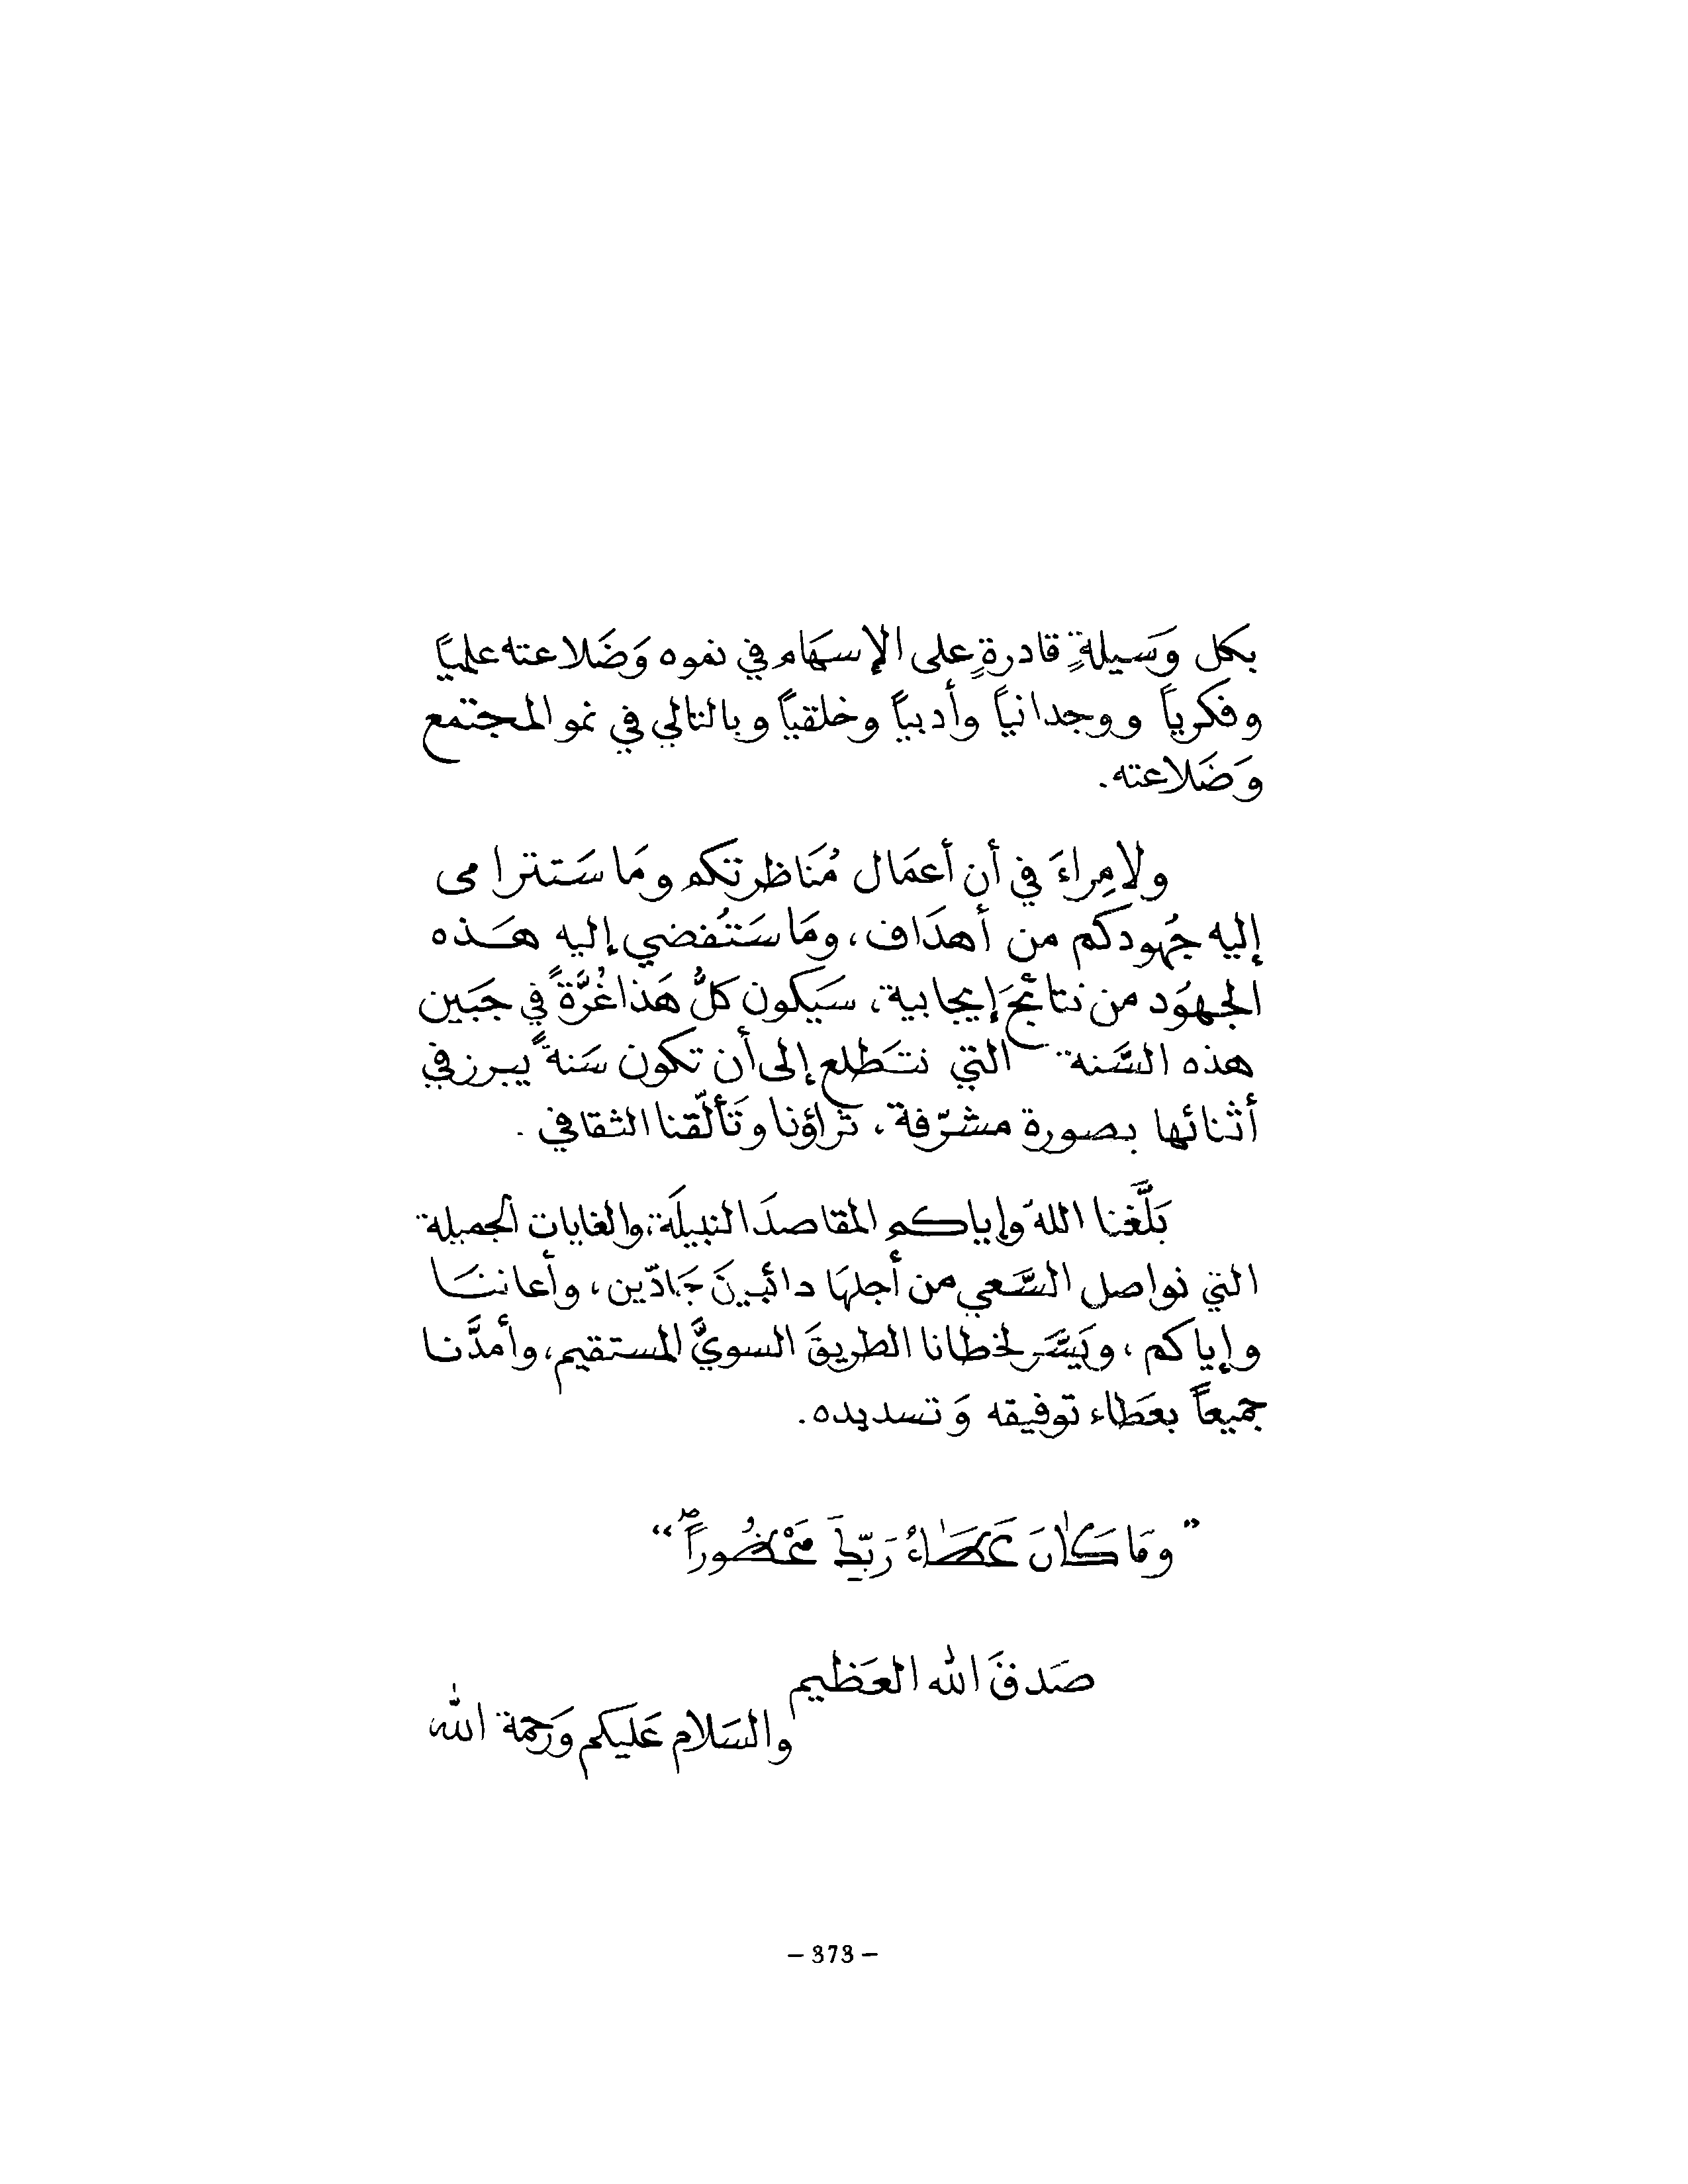 بكل وَسيلةٍ قادرةٍ على الإسهَام في نموه وَضَلاعته علمياً
وفكرياً ووجدانياً وأدبياً وخلقياً وبالتالي في نمو المجتمع
وَضَلاعته.
ولا مِراءَ في أن أعمَال مُنَاظرتكم ومَا سَتترامى
إليه جُهودكم من أهدَاف، ومَا سَتُفضي إليه هَذه
الجهوُد من نتائجَ إيجابية، سَيكون كلُّ هَذا غُرَّةً في جَبَين
هذه السَّنة التي نتَطلع إلى أن تكون سَنةً يبرز في
أثنائها بصورة مشرّفة، ثراؤنا وتَألّقنا الثقافي.
بَلَّغنا اللهُ وإياكم المقاصدَ النبيلَة، والغايات الجميلة
التي نواصل السَّعي من أجلهَا دائبينَ جَادّين، وأعاننَا
وإياكم، ويَسَّر لخطانا الطريقَ السويَّ المستقيم، وأمدَّنا
جميعاً بعَطاء توفيقه وَتسديده.
"وَمَا كَانَ عَطَاءُ رَبِّكَ مَحْضُوراً"
صَدقَ الله العَظيم
والسَلام عَليكم وَرَحمة الله
- 373 -